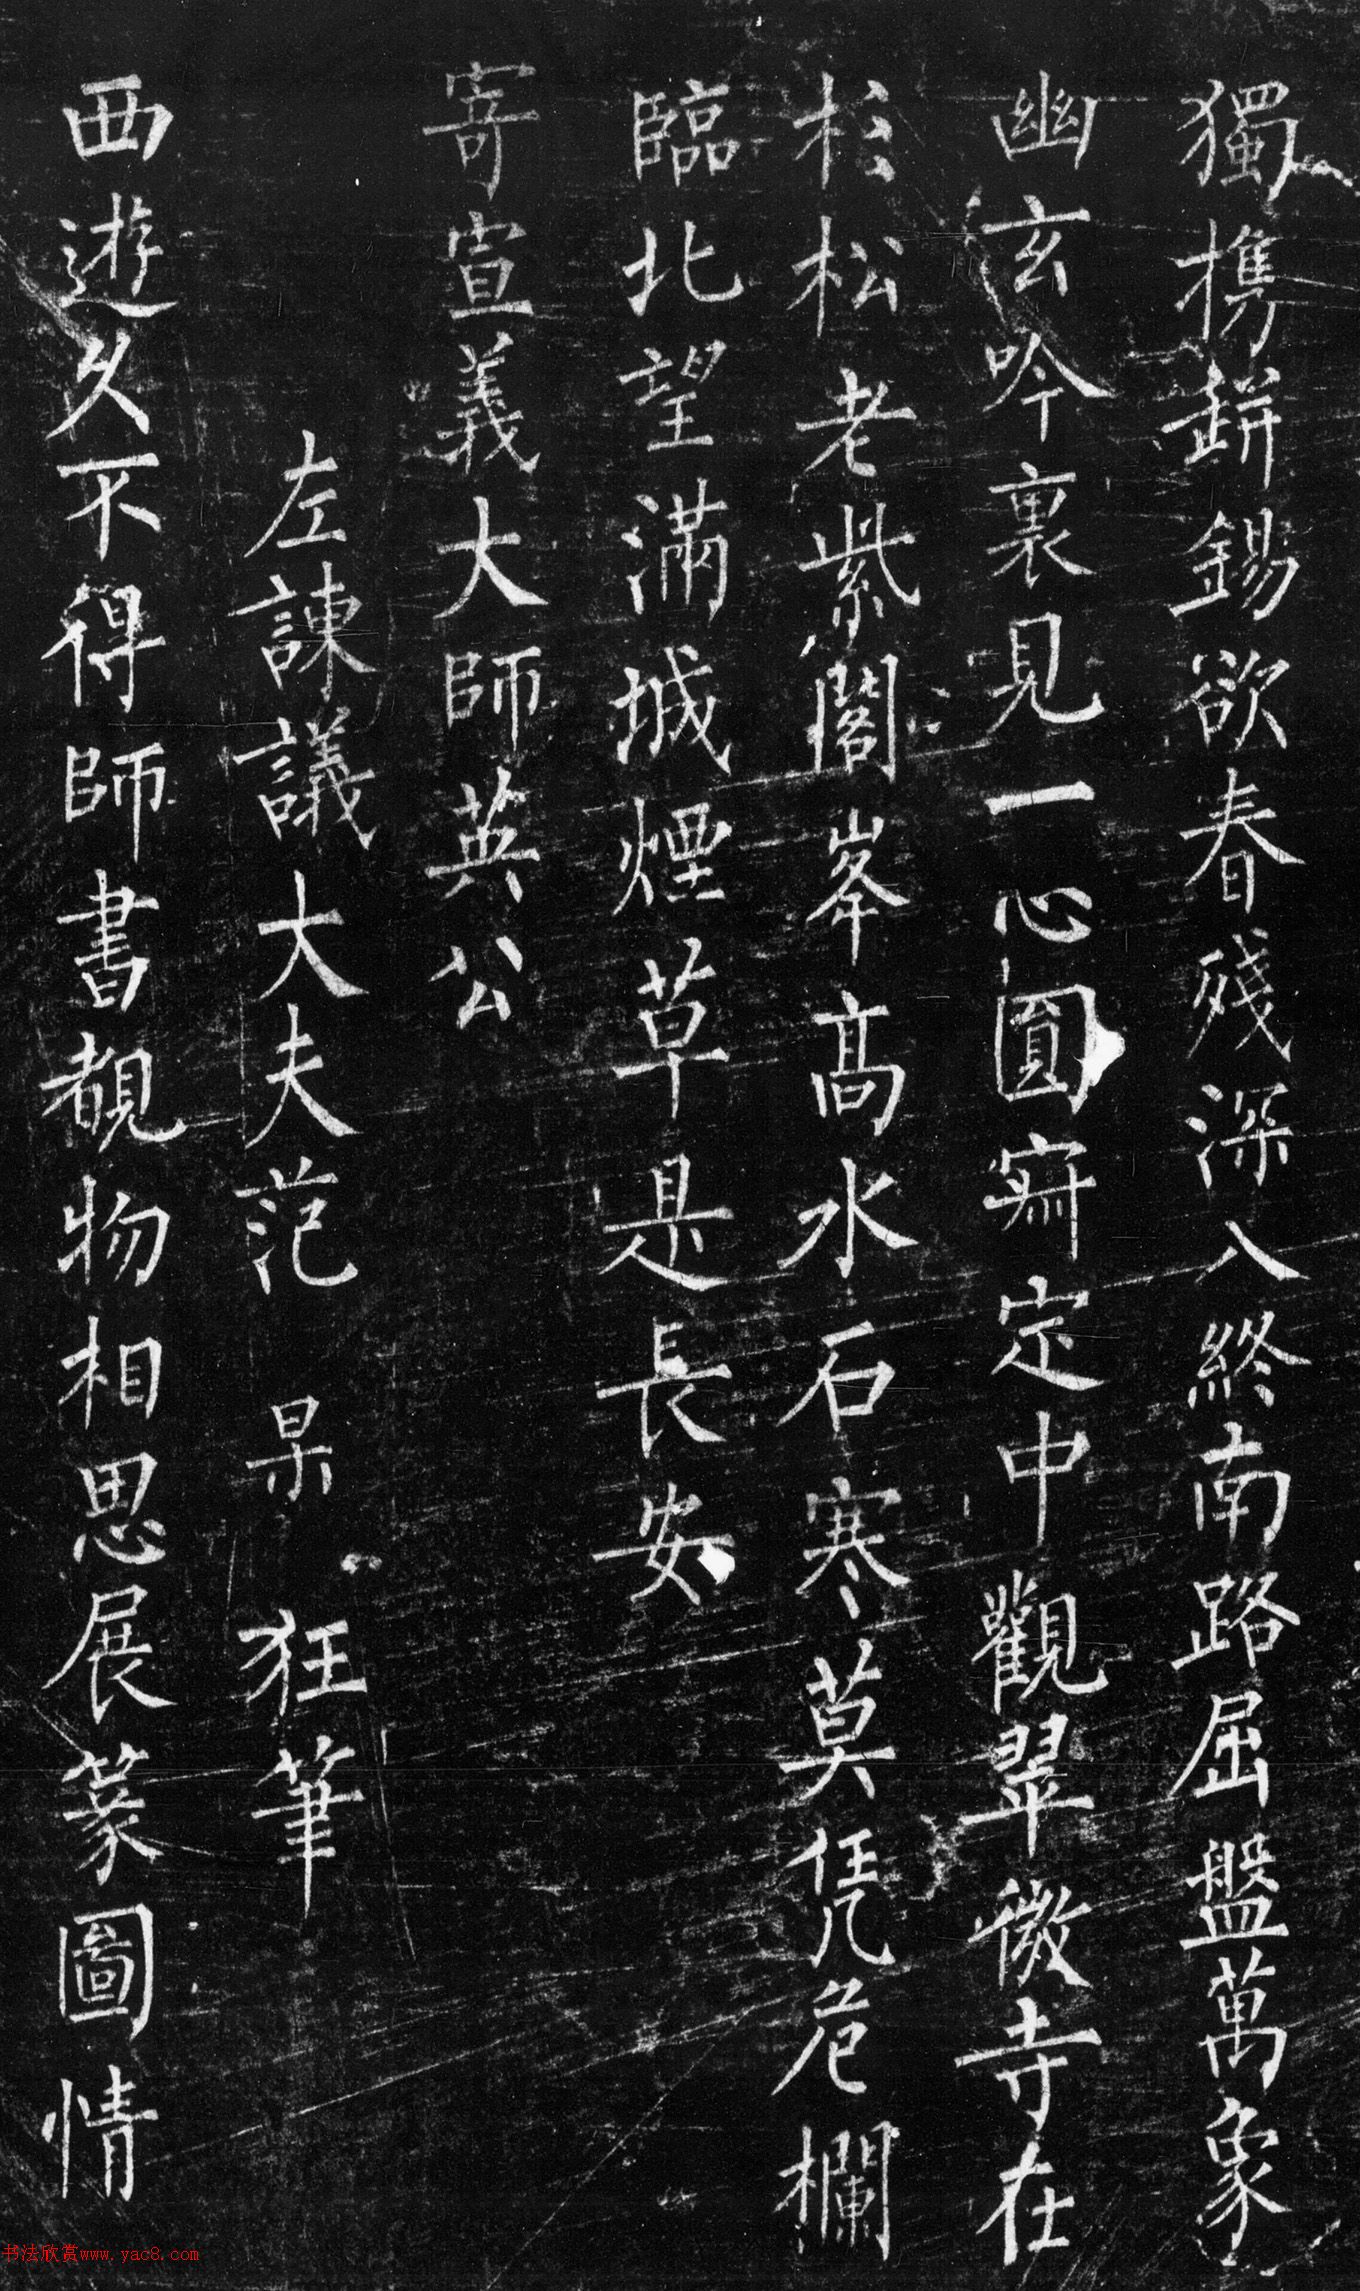 獨携缾錫欲春殘深入終南路屈盤萬象
幽玄吟裏見一心圓寂定中觀翠微寺在
杉松老紫閣峯高水石寒莫凭危欄
臨北望滿城煙草是長安
寄宣義大師英公
左諫議大夫范杲狂筆
西遊久不得師書覩物相思展篆圖情
书法欣赏www.yac8.com